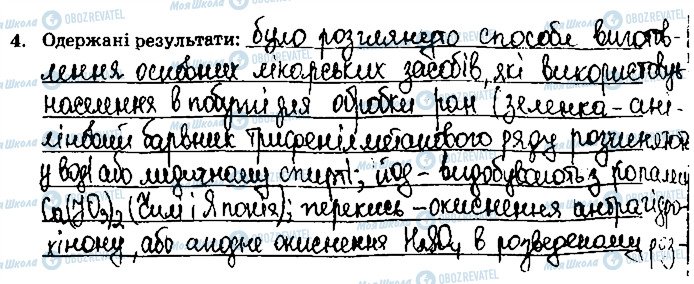 4. Одержані результати: було розглянуто способи виготов-
лення основних лікарських засобів, які використовує
населення в побуті для обробки ран (зеленка - ані-
ліновий барвник трифенілметанового ряду розчиняють
у воді або медичному спирті; йод - видобувають з копалень
Ca(JO3)2 (Чилі і Японія); перекись - окиснення антрагідро-
хінону, або анодне окиснення H2SO4 в розведеному роз-